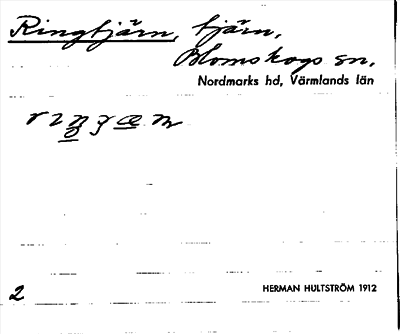 Ringtjärn, tjärn,
Blomskogs sn.
Nordmarks hd, Värmlands län
2
HERMAN HULTSTRÖM 1912